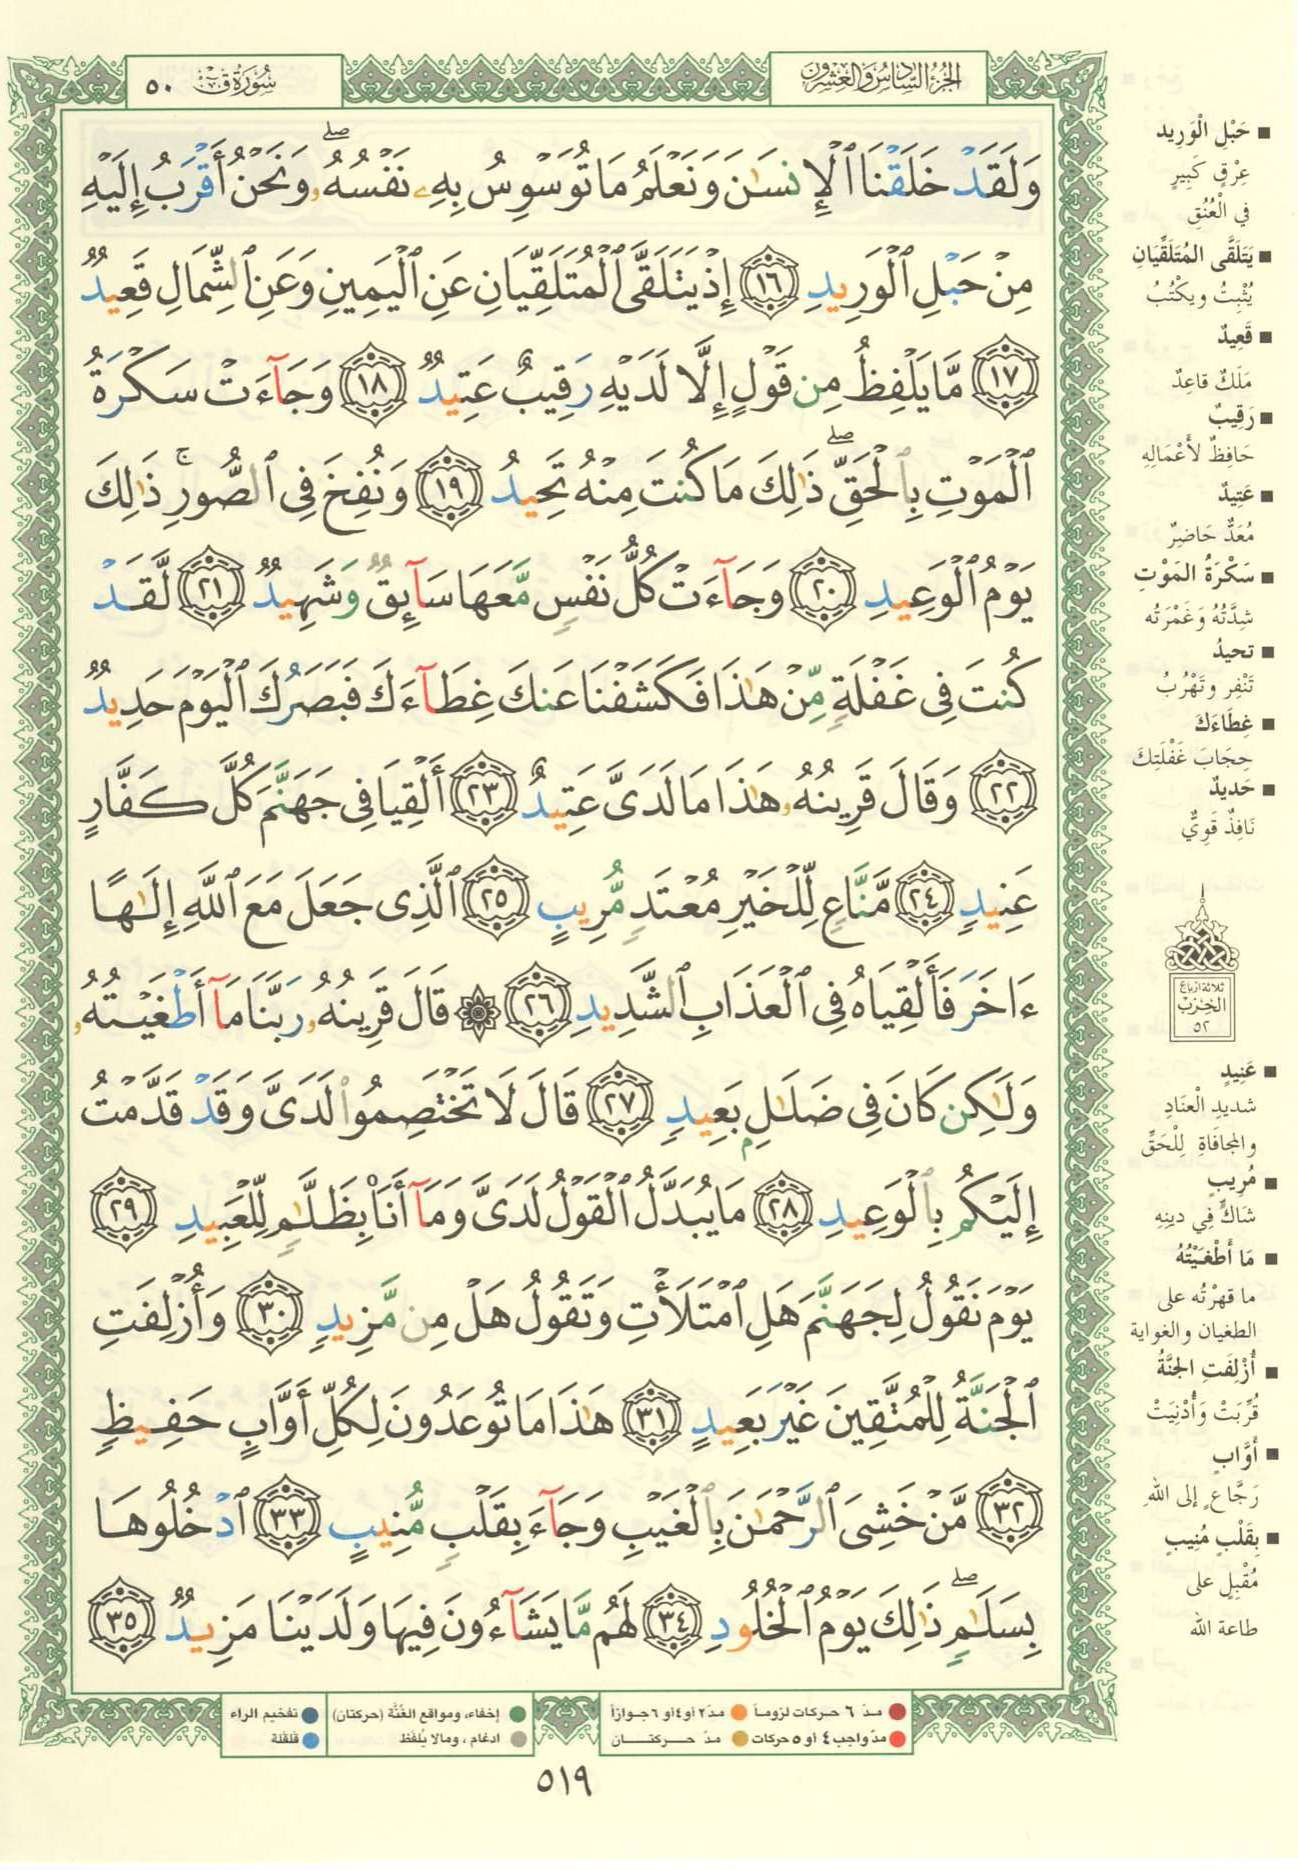 الجزء السادس والعشرون
سورة ق ٥٠
وَلَقَدْ خَلَقْنَا ٱلْإِنسَٰنَ وَنَعْلَمُ مَا تُوَسْوِسُ بِهِۦ نَفْسُهُۥ ۖ وَنَحْنُ أَقْرَبُ إِلَيْهِ
مِنْ حَبْلِ ٱلْوَرِيدِ ١٦ إِذْ يَتَلَقَّى ٱلْمُتَلَقِّيَانِ عَنِ ٱلْيَمِينِ وَعَنِ ٱلشِّمَالِ قَعِيدٌ
١٧ مَّا يَلْفِظُ مِن قَوْلٍ إِلَّا لَدَيْهِ رَقِيبٌ عَتِيدٌ ١٨ وَجَآءَتْ سَكْرَةُ
ٱلْمَوْتِ بِٱلْحَقِّ ۖ ذَٰلِكَ مَا كُنتَ مِنْهُ تَحِيدُ ١٩ وَنُفِخَ فِى ٱلصُّورِ ۚ ذَٰلِكَ
يَوْمُ ٱلْوَعِيدِ ٢٠ وَجَآءَتْ كُلُّ نَفْسٍ مَّعَهَا سَآئِقٌ وَشَهِيدٌ ٢١ لَّقَدْ
كُنتَ فِى غَفْلَةٍ مِّنْ هَٰذَا فَكَشَفْنَا عَنكَ غِطَآءَكَ فَبَصَرُكَ ٱلْيَوْمَ حَدِيدٌ
٢٢ وَقَالَ قَرِينُهُۥ هَٰذَا مَا لَدَىَّ عَتِيدٌ ٢٣ أَلْقِيَا فِى جَهَنَّمَ كُلَّ كَفَّارٍ
عَنِيدٍ ٢٤ مَّنَّاعٍ لِّلْخَيْرِ مُعْتَدٍ مُّرِيبٍ ٢٥ ٱلَّذِى جَعَلَ مَعَ ٱللَّهِ إِلَٰهًا
ءَاخَرَ فَأَلْقِيَاهُ فِى ٱلْعَذَابِ ٱلشَّدِيدِ ٢٦ ۞ قَالَ قَرِينُهُۥ رَبَّنَا مَآ أَطْغَيْتُهُۥ
وَلَٰكِن كَانَ فِى ضَلَٰلٍۭ بَعِيدٍ ٢٧ قَالَ لَا تَخْتَصِمُوا۟ لَدَىَّ وَقَدْ قَدَّمْتُ
إِلَيْكُم بِٱلْوَعِيدِ ٢٨ مَا يُبَدَّلُ ٱلْقَوْلُ لَدَىَّ وَمَآ أَنَا۠ بِظَلَّٰمٍ لِّلْعَبِيدِ ٢٩
يَوْمَ نَقُولُ لِجَهَنَّمَ هَلِ ٱمْتَلَأْتِ وَتَقُولُ هَلْ مِن مَّزِيدٍ ٣٠ وَأُزْلِفَتِ
ٱلْجَنَّةُ لِلْمُتَّقِينَ غَيْرَ بَعِيدٍ ٣١ هَٰذَا مَا تُوعَدُونَ لِكُلِّ أَوَّابٍ حَفِيظٍ
٣٢ مَّنْ خَشِىَ ٱلرَّحْمَٰنَ بِٱلْغَيْبِ وَجَآءَ بِقَلْبٍ مُّنِيبٍ ٣٣ ٱدْخُلُوهَا
بِسَلَٰمٍ ۖ ذَٰلِكَ يَوْمُ ٱلْخُلُودِ ٣٤ لَهُم مَّا يَشَآءُونَ فِيهَا وَلَدَيْنَا مَزِيدٌ ٣٥
■ حَبْلِ الْوَرِيد
عِرْقٍ كَبِيرٍ
في الْعُنُقِ
■ يَتَلَقَّى المُتَلَقِّيَانِ
يُثْبِتُ ويكْتُبُ
■ قَعِيدٌ
مَلَكٌ قاعِدٌ
■ رَقِيبٌ
حَافِظٌ لأَعْمَالِهِ
■ عَتِيدٌ
مُعَدٌّ حَاضِرٌ
■ سَكْرَةُ المَوْتِ
شِدَّتُهُ وَغَمْرَتُه
■ تحيدُ
تَنْفِر وتَهْرُبُ
■ غِطَاءَكَ
حِجَابَ غَفْلَتِكَ
■ حَديدٌ
نَافِذٌ قَوِيٌّ
ثلاثة أرباع
الحزب
٥٢
■ عَنِيدٍ
شديدِ الْعنَادِ
والمجافَاةِ لِلْحَقِّ
■ مُرِيبٍ
شَاكٍّ فِي دينِهِ
■ مَا أَطْغَيْتُهُ
ما قهرْتُه على
الطغيان والغواية
■ أُزْلِفَتِ الجنَّةُ
قُرِّبَتْ وَأُدْنِيَتْ
■ أَوَّابٍ
رَجَّاعٍ إلى اللهِ
■ بِقَلْبٍ مُنِيبٍ
مُقْبِلٍ على
طاعة الله
مدّ ٦ حركات لزوماً مدّ ٢ أو ٤ أو ٦ جوازاً
مدّ واجب ٤ أو ٥ حركات مدّ حركتان
إخفاء، ومواقع الغُنَّة (حركتان) تفخيم الراء
ادغام ، ومالا يُلفَظ قلقلة
٥١٩